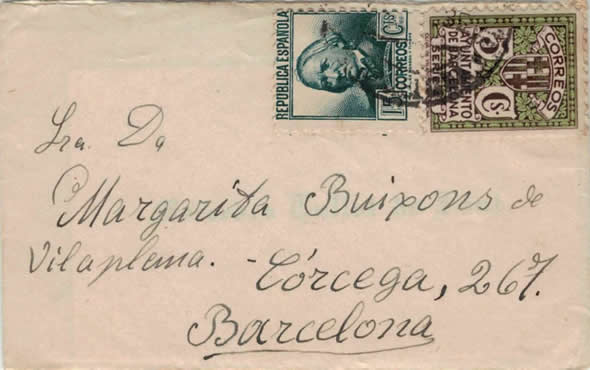 REPUBLICA ESPAÑOLA
15 Cts
CORREOS
CORREOS
5 Cs.
AYUNTAMIENTO
DE BARCELONA
Sra. Da
Margarita Buixons de
Vilaplana. - Córcega, 267.
Barcelona